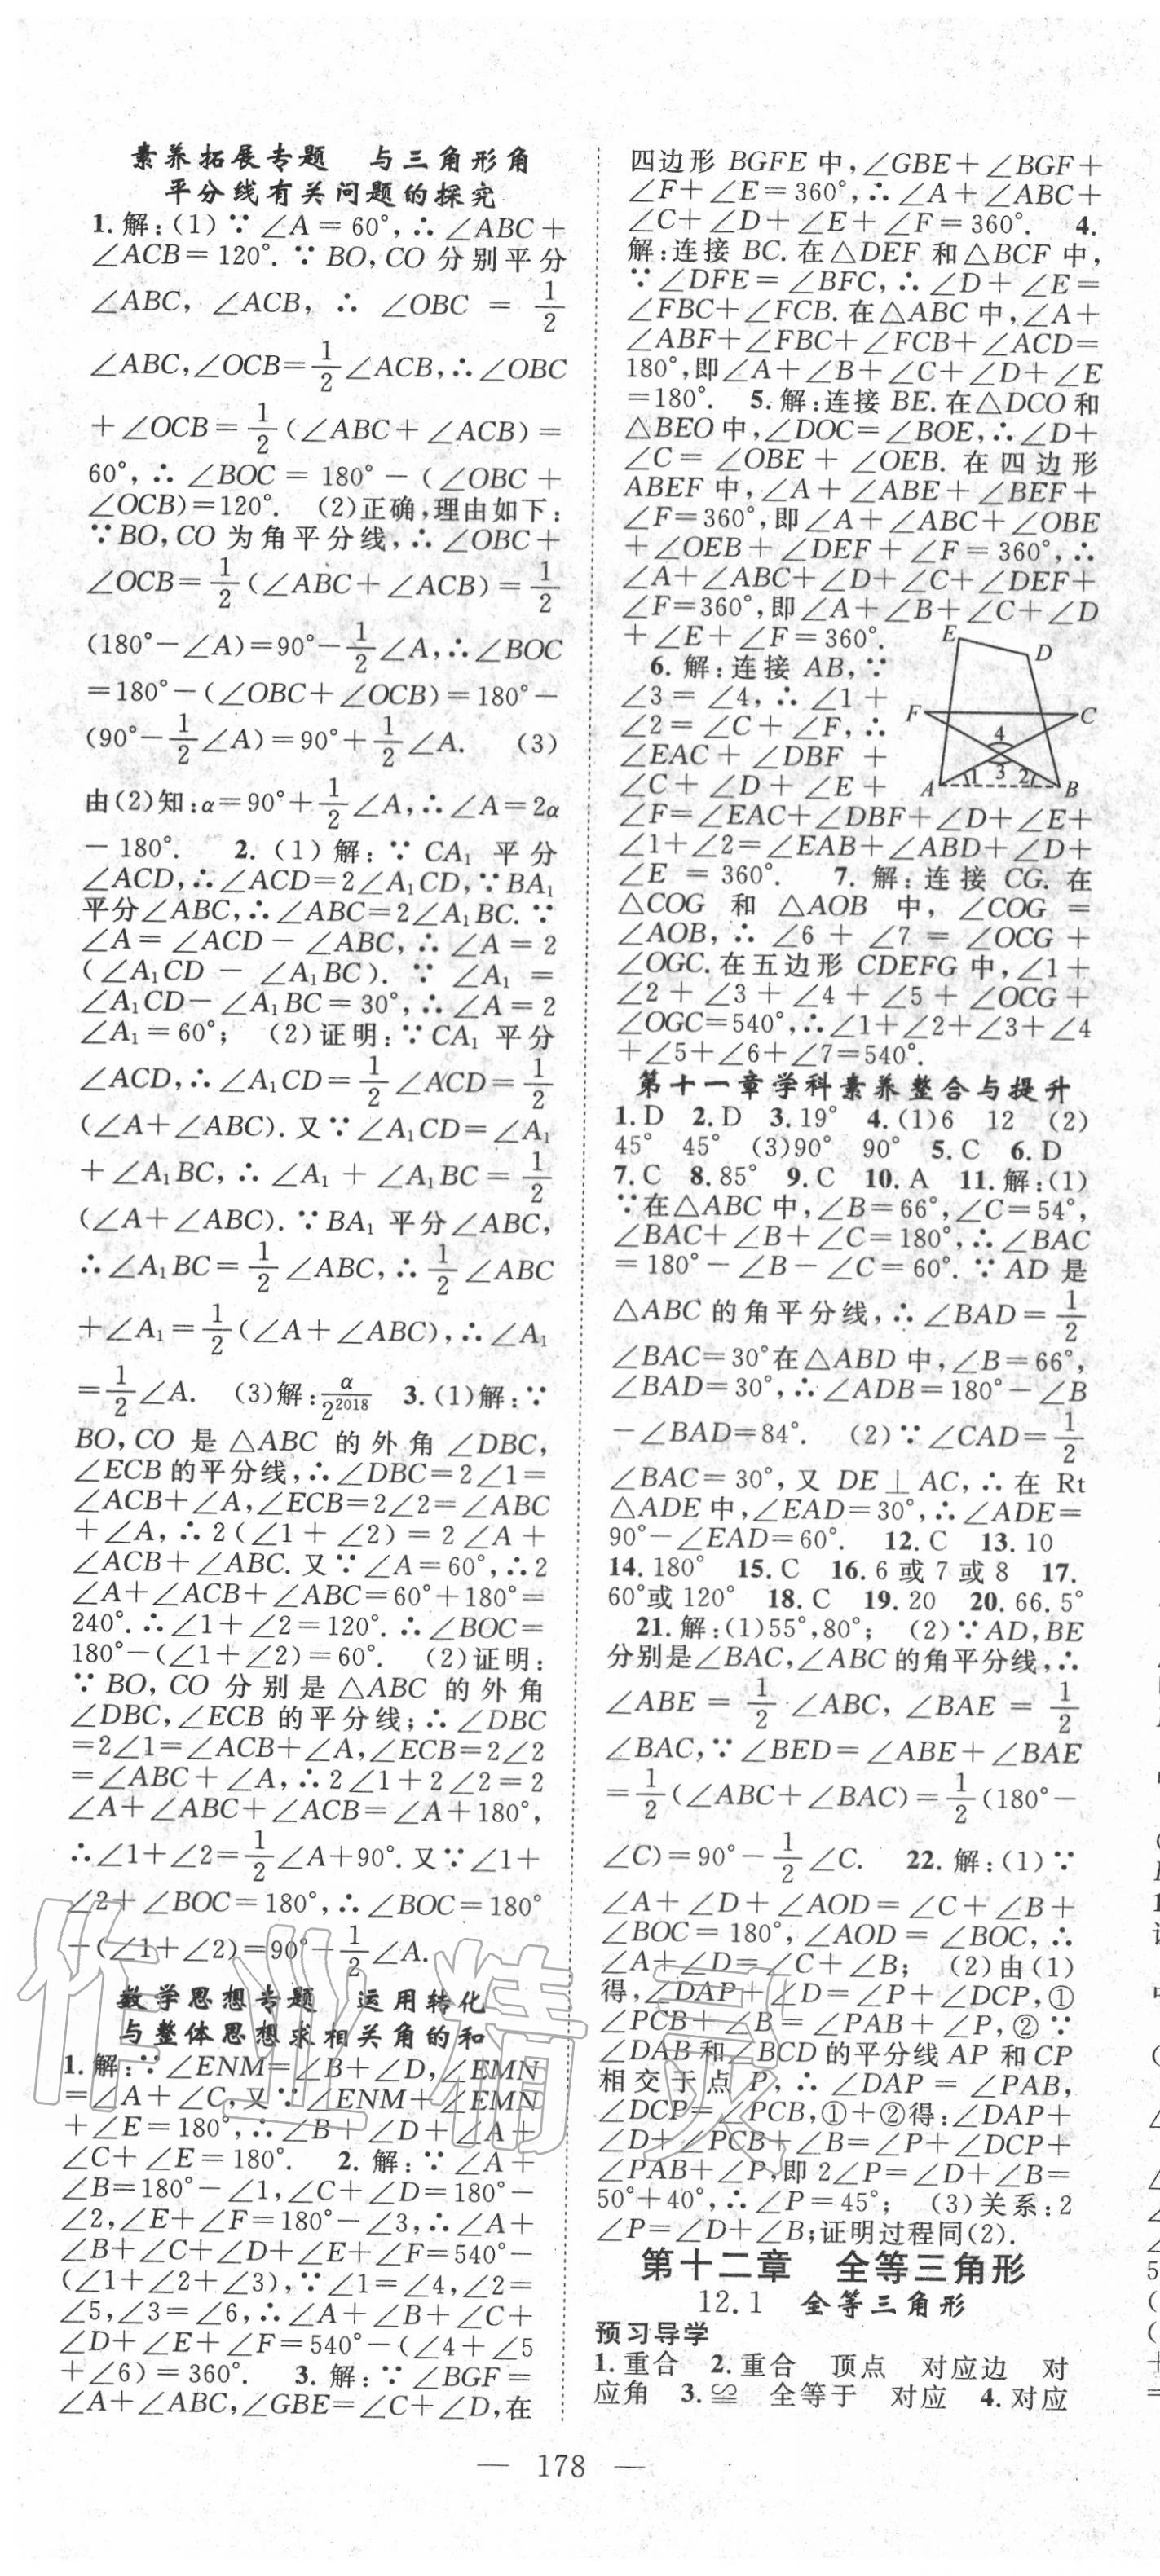 素养拓展专题 与三角形角
平分线有关问题的探究
1.解:(1)∵∠A=60°,∴∠ABC+
∠ACB=120°.∵BO,CO 分别平分
∠ABC,∠ACB,∴∠OBC=1/2
∠ABC,∠OCB=1/2∠ACB,∴∠OBC
+∠OCB=1/2(∠ABC+∠ACB)=
60°,∴∠BOC=180°-(∠OBC+
∠OCB)=120°. (2)正确,理由如下:
∵BO,CO 为角平分线,∴∠OBC+
∠OCB=1/2(∠ABC+∠ACB)=1/2
(180°-∠A)=90°-1/2∠A,∴∠BOC
=180°-(∠OBC+∠OCB)=180°-
(90°-1/2∠A)=90°+1/2∠A. (3)
由(2)知:α=90°+1/2∠A,∴∠A=2α
-180°. 2.(1)解:∵CA₁ 平分
∠ACD,∴∠ACD=2∠A₁CD,∵BA₁
平分∠ABC,∴∠ABC=2∠A₁BC.∵
∠A=∠ACD-∠ABC,∴∠A=2
(∠A₁CD-∠A₁BC).∵∠A₁=
∠A₁CD-∠A₁BC=30°,∴∠A=2
∠A₁=60°; (2)证明:∵CA₁ 平分
∠ACD,∴∠A₁CD=1/2∠ACD=1/2
(∠A+∠ABC).又∵∠A₁CD=∠A₁
+∠A₁BC,∴∠A₁+∠A₁BC=1/2
(∠A+∠ABC).∵BA₁ 平分∠ABC,
∴∠A₁BC=1/2∠ABC,∴1/2∠ABC
+∠A₁=1/2(∠A+∠ABC),∴∠A₁
=1/2∠A. (3)解:α/2²⁰¹⁸ 3.(1)解:∵
BO,CO 是△ABC 的外角∠DBC,
∠ECB的平分线,∴∠DBC=2∠1=
∠ACB+∠A,∠ECB=2∠2=∠ABC
+∠A,∴2(∠1+∠2)=2∠A+
∠ACB+∠ABC.又∵∠A=60°,∴2
∠A+∠ACB+∠ABC=60°+180°=
240°.∴∠1+∠2=120°.∴∠BOC=
180°-(∠1+∠2)=60°. (2)证明:
∵BO,CO 分别是△ABC 的外角
∠DBC,∠ECB 的平分线;∴∠DBC
=2∠1=∠ACB+∠A,∠ECB=2∠2
=∠ABC+∠A,∴2∠1+2∠2=2
∠A+∠ABC+∠ACB=∠A+180°,
∴∠1+∠2=1/2∠A+90°.又∵∠1+
∠2+∠BOC=180°,∴∠BOC=180°
-(∠1+∠2)=90°-1/2∠A.
数学思想专题 运用转化
与整体思想求相关角的和
1.解:∵∠ENM=∠B+∠D,∠EMN
=∠A+∠C,又∵∠ENM+∠EMN
+∠E=180°,∴∠B+∠D+∠A+
∠C+∠E=180°. 2.解:∵∠A+
∠B=180°-∠1,∠C+∠D=180°-
∠2,∠E+∠F=180°-∠3,∴∠A+
∠B+∠C+∠D+∠E+∠F=540°-
(∠1+∠2+∠3),∵∠1=∠4,∠2=
∠5,∠3=∠6,∴∠A+∠B+∠C+
∠D+∠E+∠F=540°-(∠4+∠5
+∠6)=360°. 3.解:∵∠BGF=
∠A+∠ABC,∠GBE=∠C+∠D,在
四边形 BGFE 中,∠GBE+∠BGF+
∠F+∠E=360°,∴∠A+∠ABC+
∠C+∠D+∠E+∠F=360°. 4.
解:连接 BC.在△DEF 和△BCF 中,
∵∠DFE=∠BFC,∴∠D+∠E=
∠FBC+∠FCB.在△ABC 中,∠A+
∠ABF+∠FBC+∠FCB+∠ACD=
180°,即∠A+∠B+∠C+∠D+∠E
=180°. 5.解:连接 BE.在△DCO和
△BEO中,∠DOC=∠BOE,∴∠D+
∠C=∠OBE+∠OEB.在四边形
ABEF 中,∠A+∠ABE+∠BEF+
∠F=360°,即∠A+∠ABC+∠OBE
+∠OEB+∠DEF+∠F=360°,∴
∠A+∠ABC+∠D+∠C+∠DEF+
∠F=360°,即∠A+∠B+∠C+∠D
+∠E+∠F=360°.
6.解:连接 AB,∵
∠3=∠4,∴∠1+
∠2=∠C+∠F,∴
∠EAC+∠DBF+
∠C+∠D+∠E+
E
D
F
C
4
A
1
3
2
B
∠F=∠EAC+∠DBF+∠D+∠E+
∠1+∠2=∠EAB+∠ABD+∠D+
∠E=360°. 7.解:连接 CG.在
△COG 和△AOB 中,∠COG=
∠AOB,∴∠6+∠7=∠OCG+
∠OGC.在五边形 CDEFG 中,∠1+
∠2+∠3+∠4+∠5+∠OCG+
∠OGC=540°,∴∠1+∠2+∠3+∠4
+∠5+∠6+∠7=540°.
第十一章学科素养整合与提升
1.D 2.D 3.19° 4.(1)6 12 (2)
45° 45° (3)90° 90° 5.C 6.D
7.C 8.85° 9.C 10.A 11.解:(1)
∵在△ABC 中,∠B=66°,∠C=54°,
∠BAC+∠B+∠C=180°,∴∠BAC
=180°-∠B-∠C=60°.∵AD 是
△ABC 的角平分线,∴∠BAD=1/2
∠BAC=30°在△ABD 中,∠B=66°,
∠BAD=30°,∴∠ADB=180°-∠B
-∠BAD=84°. (2)∵∠CAD=1/2
∠BAC=30°,又 DE⊥AC,∴在 Rt
△ADE 中,∠EAD=30°,∴∠ADE=
90°-∠EAD=60°. 12.C 13.10
14.180° 15.C 16.6或7或8 17.
60°或120° 18.C 19.20 20.66.5°
21.解:(1)55°,80°; (2)∵AD,BE
分别是∠BAC,∠ABC的角平分线,∴
∠ABE=1/2∠ABC,∠BAE=1/2
∠BAC,∵∠BED=∠ABE+∠BAE
=1/2(∠ABC+∠BAC)=1/2(180°-
∠C)=90°-1/2∠C. 22.解:(1)∵
∠A+∠D+∠AOD=∠C+∠B+
∠BOC=180°,∠AOD=∠BOC,∴
∠A+∠D=∠C+∠B; (2)由(1)
得,∠DAP+∠D=∠P+∠DCP,①
∠PCB+∠B=∠PAB+∠P,②∵
∠DAB和∠BCD的平分线AP和CP
相交于点 P,∴∠DAP=∠PAB,
∠DCP=∠PCB,①+②得:∠DAP+
∠D+∠PCB+∠B=∠P+∠DCP+
∠PAB+∠P,即2∠P=∠D+∠B=
50°+40°,∴∠P=45°; (3)关系:2
∠P=∠D+∠B;证明过程同(2).
第十二章 全等三角形
12.1 全等三角形
预习导学
1.重合 2.重合 顶点 对应边 对
应角 3.≌ 全等于 对应 4.对应
— 178 —